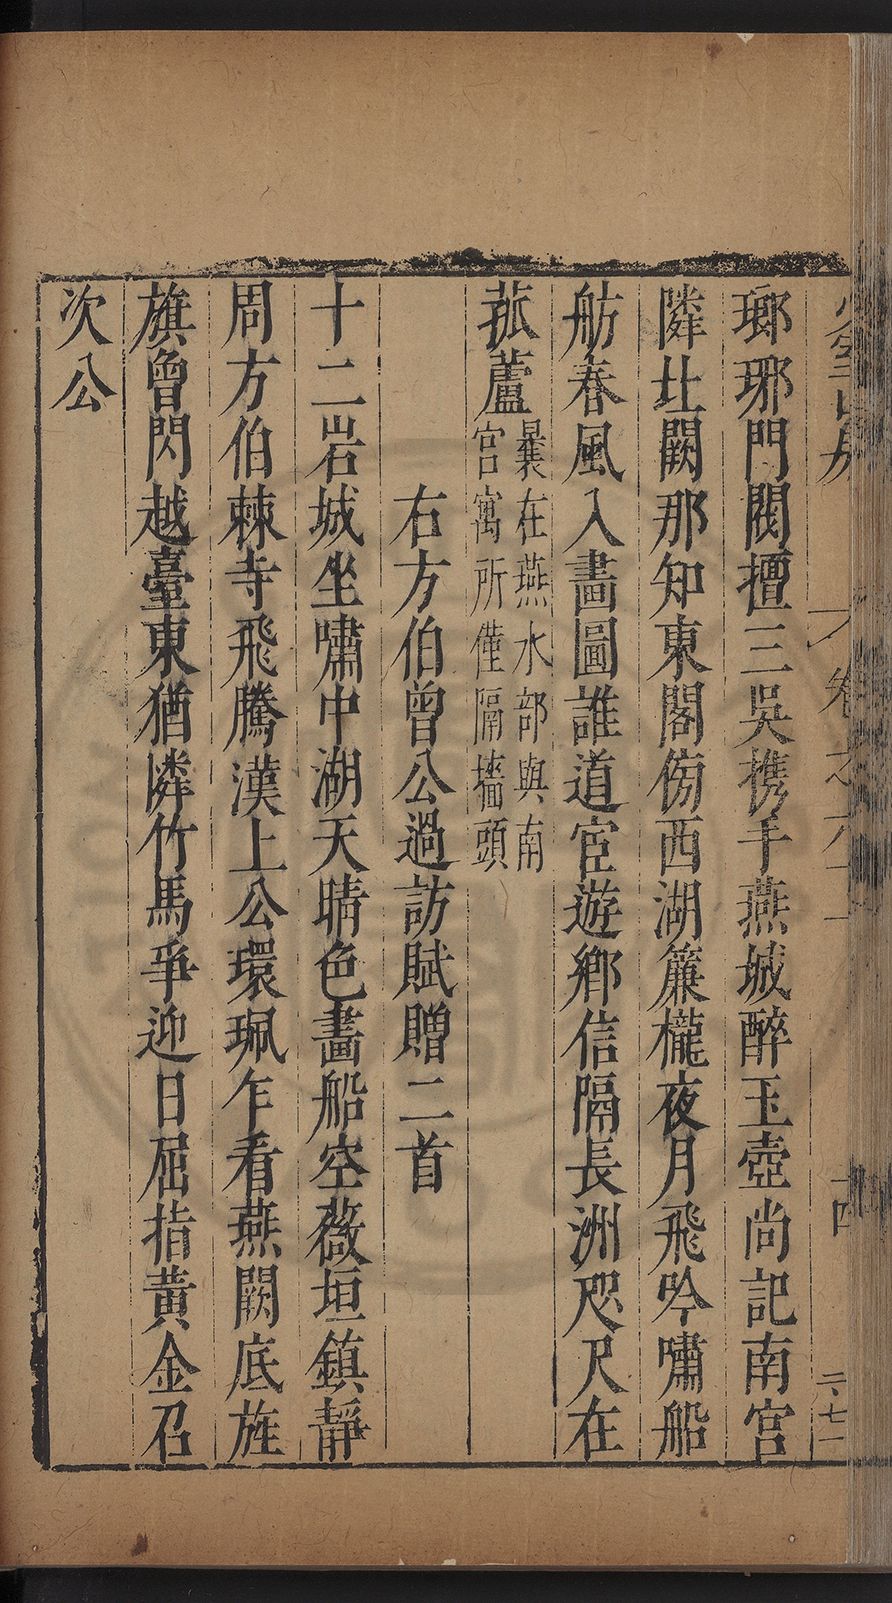 瑯琊門閥擅三吳携手燕城醉玉壺尚記南宮
隣壯闕那知東閣傍西湖簾櫳夜月飛吟嘯船
舫春風入畵圖誰道宦遊鄉信隔長洲咫尺在
菰蘆曩在燕水部與南
宮寓所僅隔墻頭
右方伯曾公過訪賦贈二首
十二岩城坐嘯中湖天晴色畵船空薇垣鎮靜
周方伯棘寺飛騰漢上公環珮乍看燕闕底旌
旗曾閃越臺東猶憐竹馬爭迎日屈指黃金召
次公
卷之六十
十四
二七一